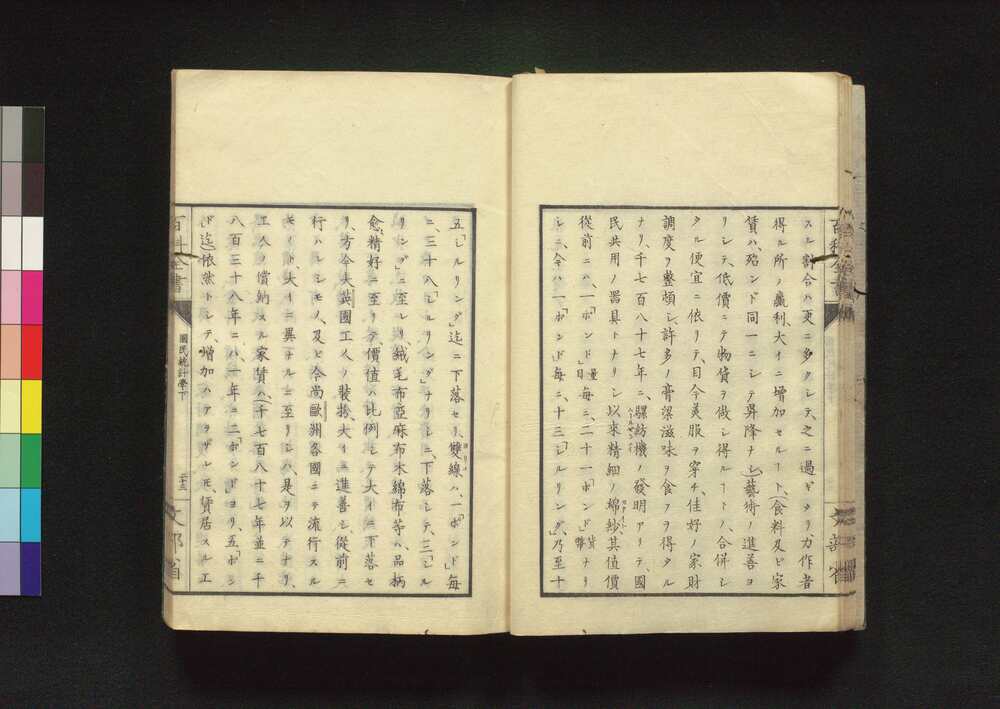 スル割合ハ更ニ多クシテ、之ニ過ギタリ、力作者
得ル所ノ贏利、大イニ增加セルト、食料及ビ家
賃ハ、殆ンド同一ニシテ昇降ナシ、藝術ノ進善ヨ
リシテ、低價ニテ物貨ヲ做シ得ルトノ、合併シ
タル便宜ニ依リテ、目今美服ヲ穿チ、佳好ノ家財
調度ヲ整頓シ、許多ノ膏粱滋味ヲ食フヲ得タル
ナリ、千七百八十七年ニ、騾紡機ノ發明アリテ、國
民共用ノ器具トナリシ以來精細ノ綿紗其値價
從前ニハ、一「ポンド」量目每ニ、二十一「ポンド」貨幣ナリ
シニ、今ハ一「ポンド」每ニ、十三「シルリング」、乃至十
五「シルリング」迄ニ下落セリ、雙線ハ、一「ポンド」每
ニ、三十八「シルリング」ナリシニ、下落シテ、三「シル
リング」ニ至レリ絨毛布亞麻布木綿布等ハ、品柄
愈精好ニ至リテ、價値ハ比例シテ大イニ下落セ
リ、方今大英國工人ノ裝扮、大イニ進善シ、從前ニ
行ハレシモノ、及ビ今尚歐洲各國ニテ流行スル
モノト、大イニ異ナルニ至リシハ、是ヲ以テナリ、
工人ノ償納スル家賃ハ、千七百八十七年並ニ千
八百三十八年ニハ、一年ニ二「ポンド」ヨリ、五「ポン
ド」迄、依然トシテ、增加ハアラザレモ、賃居スル工
百科全書
國民統計學下
文部省